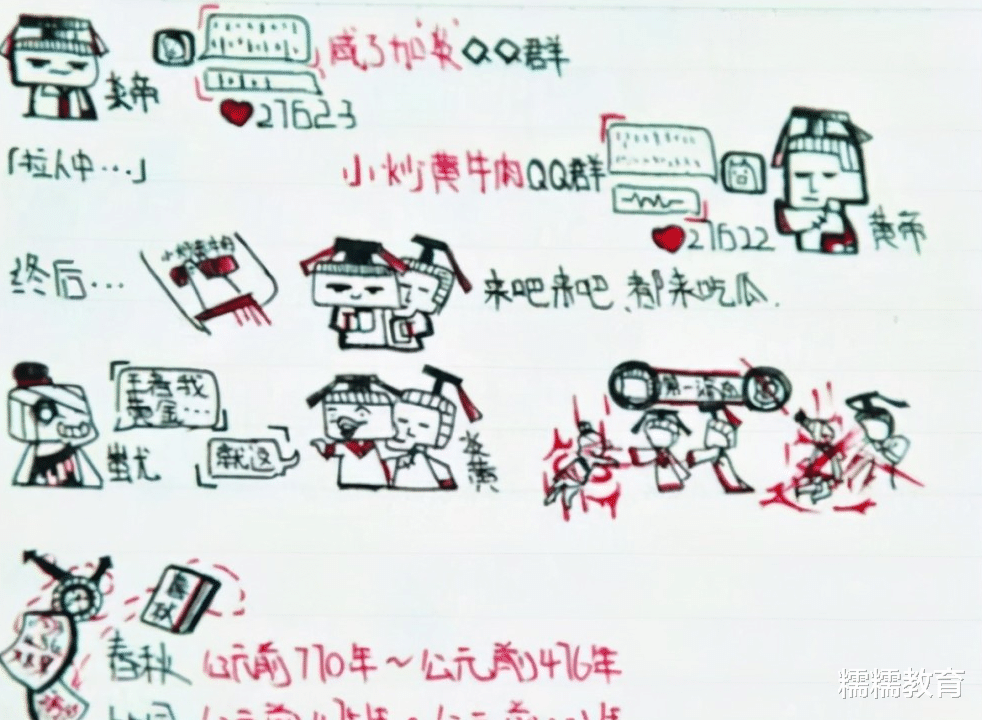 炎帝
咸了加炎QQ群
27623
「拉人中…」
小炒黄牛肉QQ群
27622
黄帝
终后…
来吧来吧、都来吃瓜.
王者我
黄金…
蚩尤
就这
炎黄
春秋
春秋 公元前770年～公元前476年
糯糯教育